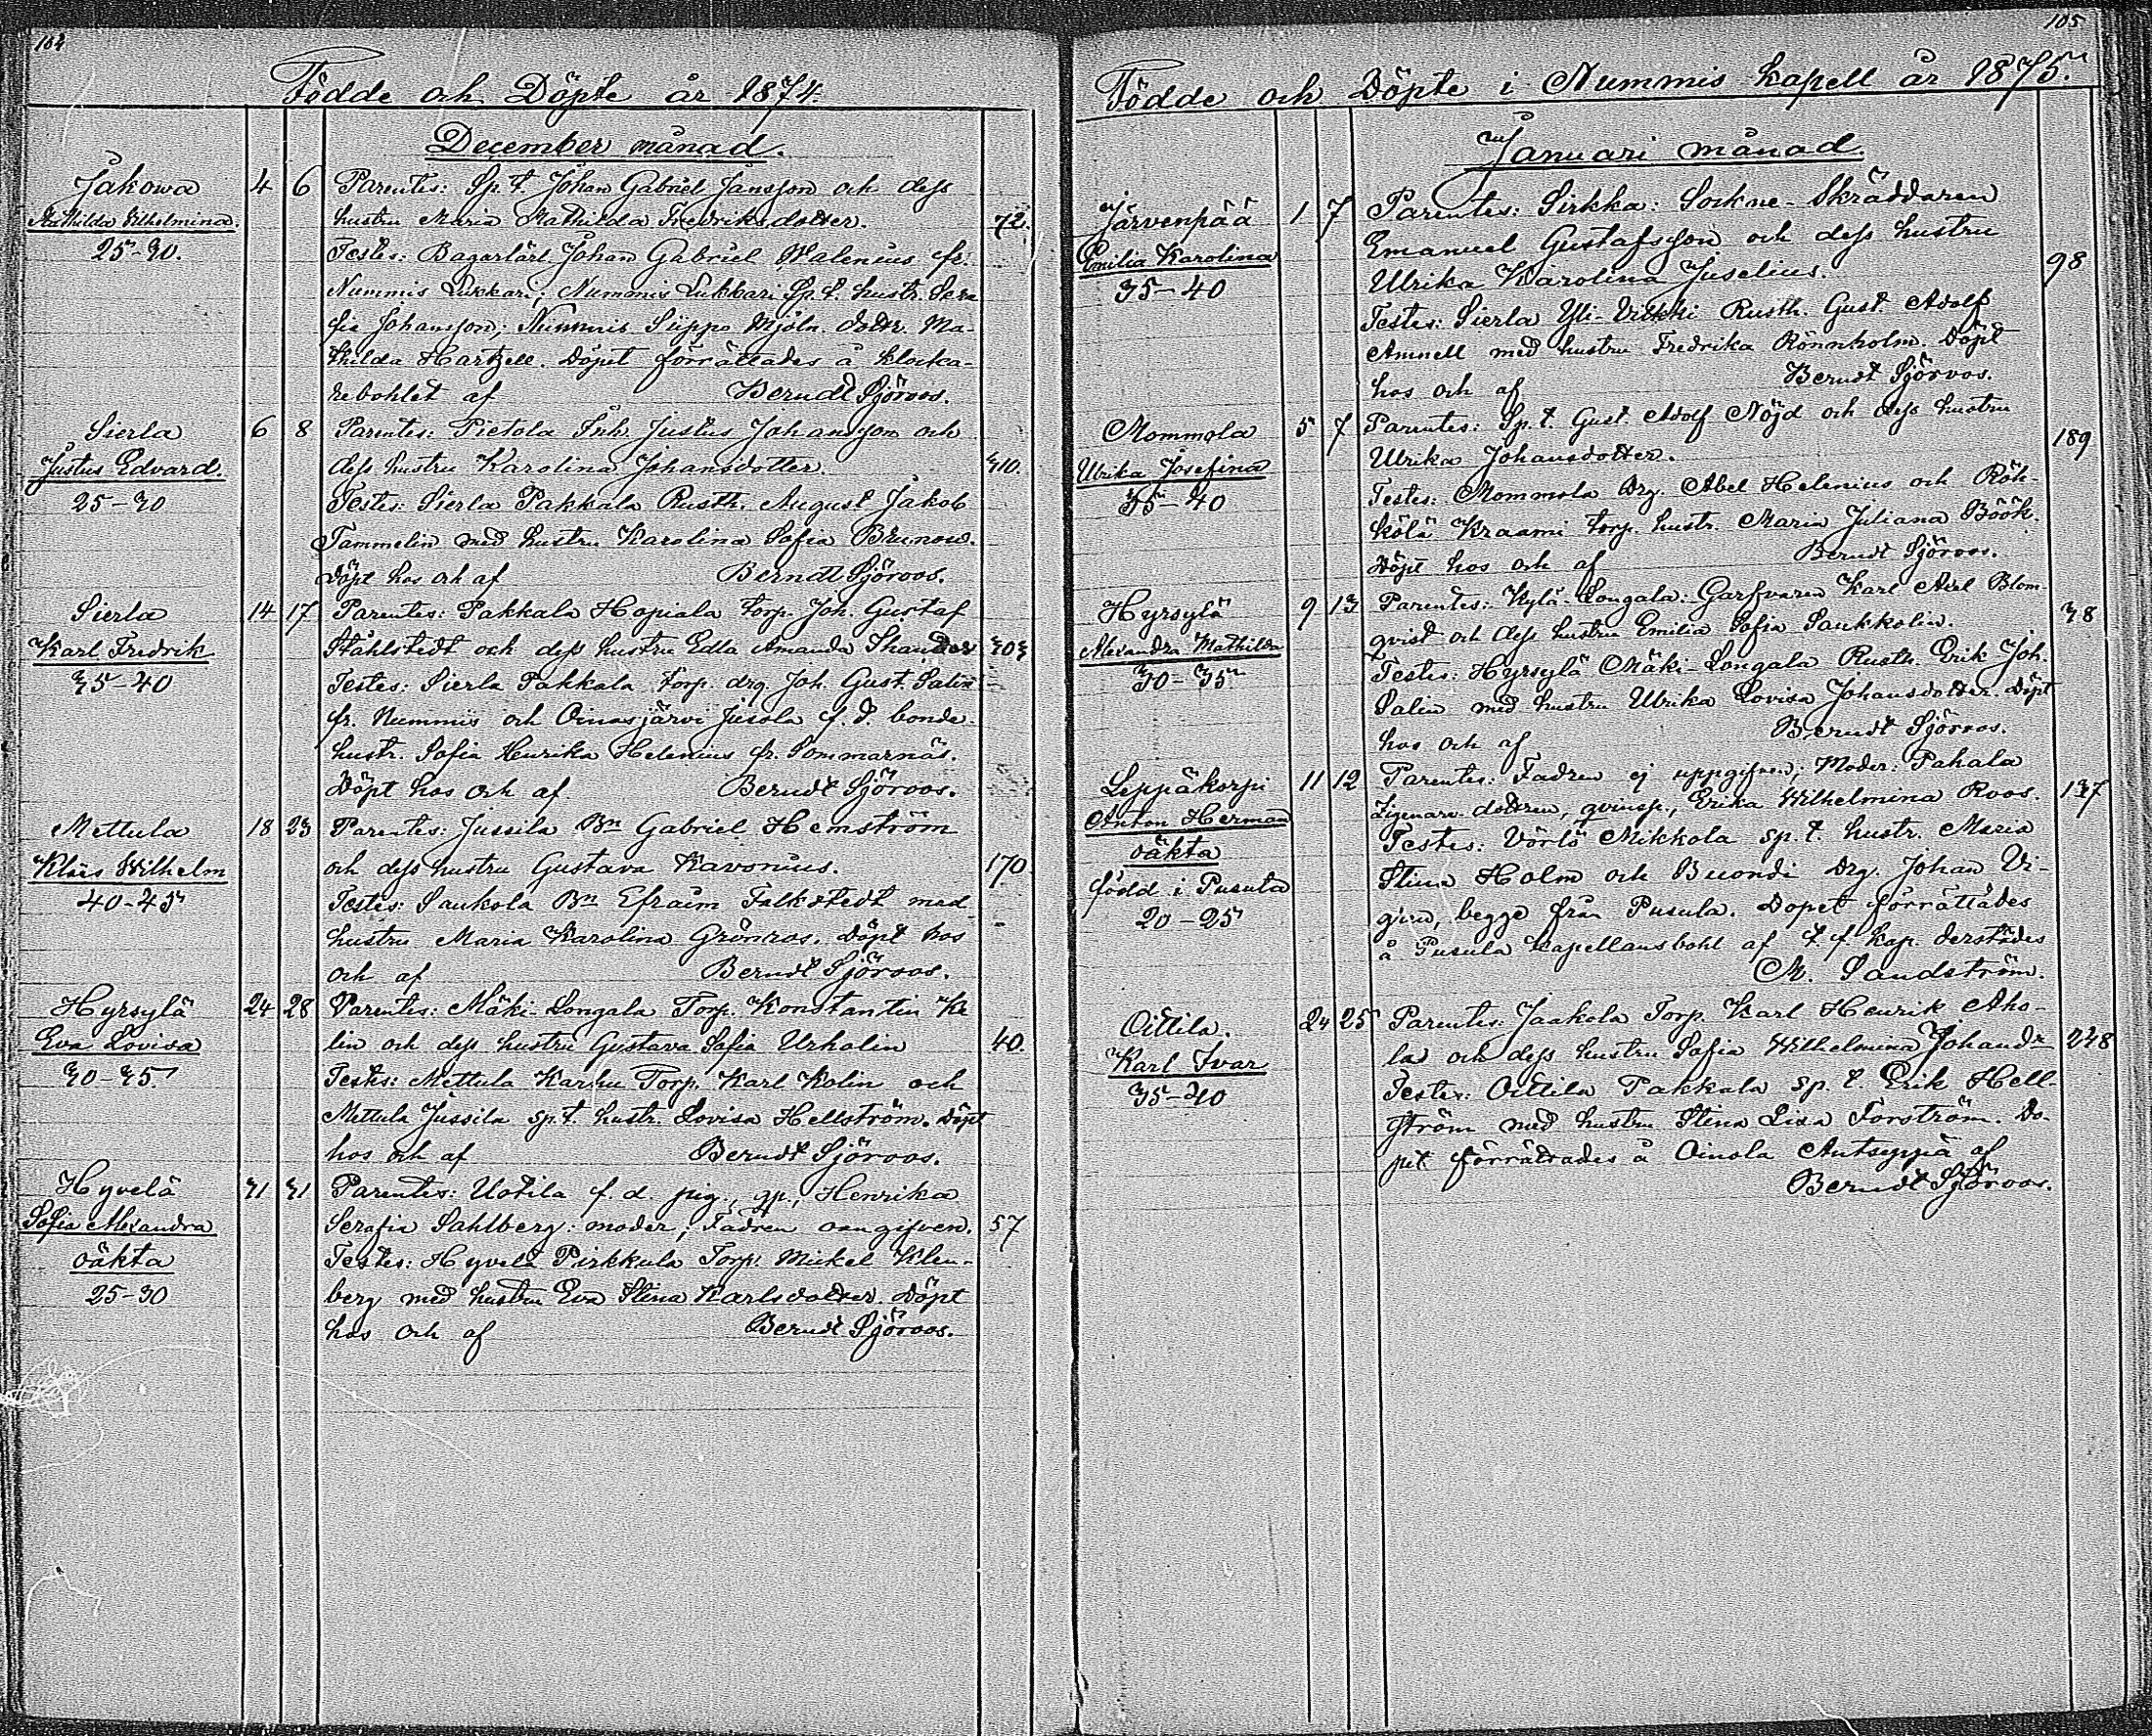 104
Födde och Döpte år 1874.
December månad.
Jakowa 4 6 Parentes: Sp. t. Johan Gabriel Jansson och dess
Mathilda Wilhelmina. hustru Maria Mathilda Fredriksdotter. 72.
25-30. Testes: Bagarlärl. Johan Gabriel Walenius fr.
Nummis Lukkari; Nummis Lukkari Sp. t. hustr. Sera
fia Johansson; Nummis Siippo Mjöln. dottr. Ma-
thilda Hartzell. Döpet förrättades å klocka-
rebohlet af Berndt Sjöroos.
Sierla 6 8 Parentes: Pietola Inh. Justus Johansson och
Justus Edvard. dess hustru Karolina Johansdotter. 310.
25-30 Testes: Sierla Pakkala Rusth. August Jakob
Tammelin med hustru Karolina Sofia Brunow.
Döpt hos och af Berndt Sjöroos.
Sierla 14 17 Parentes: Pakkala Hopiala torp. Joh. Gustaf
Karl Fredrik Ståhlstedt och dess hustru Edla Amanda 303
35-40 Testes: Sierla Pakkala torp. drg. Joh. Gust. Salin
fr. Nummis och Oinasjärvi Jusola f. d. bonde
hustr. Sofia Henrika Helenius fr. Sommarnäs.
Döpt hos och af Berndt Sjöroos.
Mettula 18 23 Parentes: Jussila Bn Gabriel Hemström
Kläes Wilhelm och dess hustru Gustava Karonius. 170.
40-45 Testes: Saukola Bn Efraim Falkstedt med
hustru Maria Karolina Grönroos. Döpt hos
och af Berndt Sjöroos.
Hyrsylä 24 28 Parentes: Mäki-Longala Torp. Konstantin Ke
Eva Lovisa lin och dess hustru Gustava Sofia Urholin 40.
30-35. Testes: Mettula Karhu Torp. Karl Kolin och
Mettula Jussila sp. t. hustr. Lovisa Hellström. Döpt
hos och af Berndt Sjöroos.
Hyvelä 31 31 Parentes: Uotila f. d. pig., qp., Henrika
Sofia Alexandra Serafia Sahlberg: moder; Fadren oangifven. 57
oäkta Testes: Hyvelä Pirkkula Torp. Mickel Klen-
25-30 berg med hustru Eva Stina Karlsdotter. Döpt
hos och af Berndt Sjöroos.
105
Födde och Döpte i Nummis Kapell år 1875.
Januari månad.
Järvenpää 1 7 Parentes: Sirkka: Sockne-Skräddaren
Emilia Karolina Emanuel Gustafsson och dess hustru
35-40 Ulrika Karolina Juselius. 98
Testes: Sierla Yli-Vikki Rusth. Gust. Adolf
Amnell med hustru Fredrika Rönnholm. Döpt
hos och af Berndt Sjöroos.
Mommola 5 7 Parentes: Sp. t. Gust. Adolf Nöjd och dess hustru
Ulrika Josefina Ulrika Johansdotter. 189
35-40 Testes: Mommola Drg. Abel Helenius och Röh-
kölä Kraami torp. hustr. Maria Juliana Böök.
Döpt hos och af Berndt Sjöroos.
Hyrsylä 9 13 Parentes: Kylä-Longala: Garfvaren Karl Axel Blom-
Alexandra Mathilda qvist och dess hustru Emilia Sofia Saukkolin. 38
30-35 Testes: Hyrsylä Mäki-Longala Rusth. Erik Joh.
Salin med hustru Ulrika Lovisa Johansdotter. Döpt
hos och af Berndt Sjöroos.
Leppäkorpi 11 12 Parentes: Fadren ej uppgifven; Moder: Pahala
Anton Herman Zigenare-dottren, qvinsp., Erika Wilhelmina Roos. 137
oäkta Testes: Vörlö Mikkola sp. t. hustr. Maria
född i Pusula Stina Holm och Buondi Drg. Johan Vi-
20-25 gren, begge från Pusula. Dopet förrättades
å Pusula Kapellansbohl af t. f. kap. derstädes
M. Sandström.
Oittila. 24 25 Parentes: Jaakola Torp. Karl Henrik Aho-
Karl Ivar la och dess hustru Sofia Wilhelmina Johansdr 248
35-40 Testes: Oittila Pakkala sp. t. Erik Hell-
ström med hustru Stina Lisa Forström. Do-
pet förrättades å Oinola Antseppä af
Berndt Sjöroos.